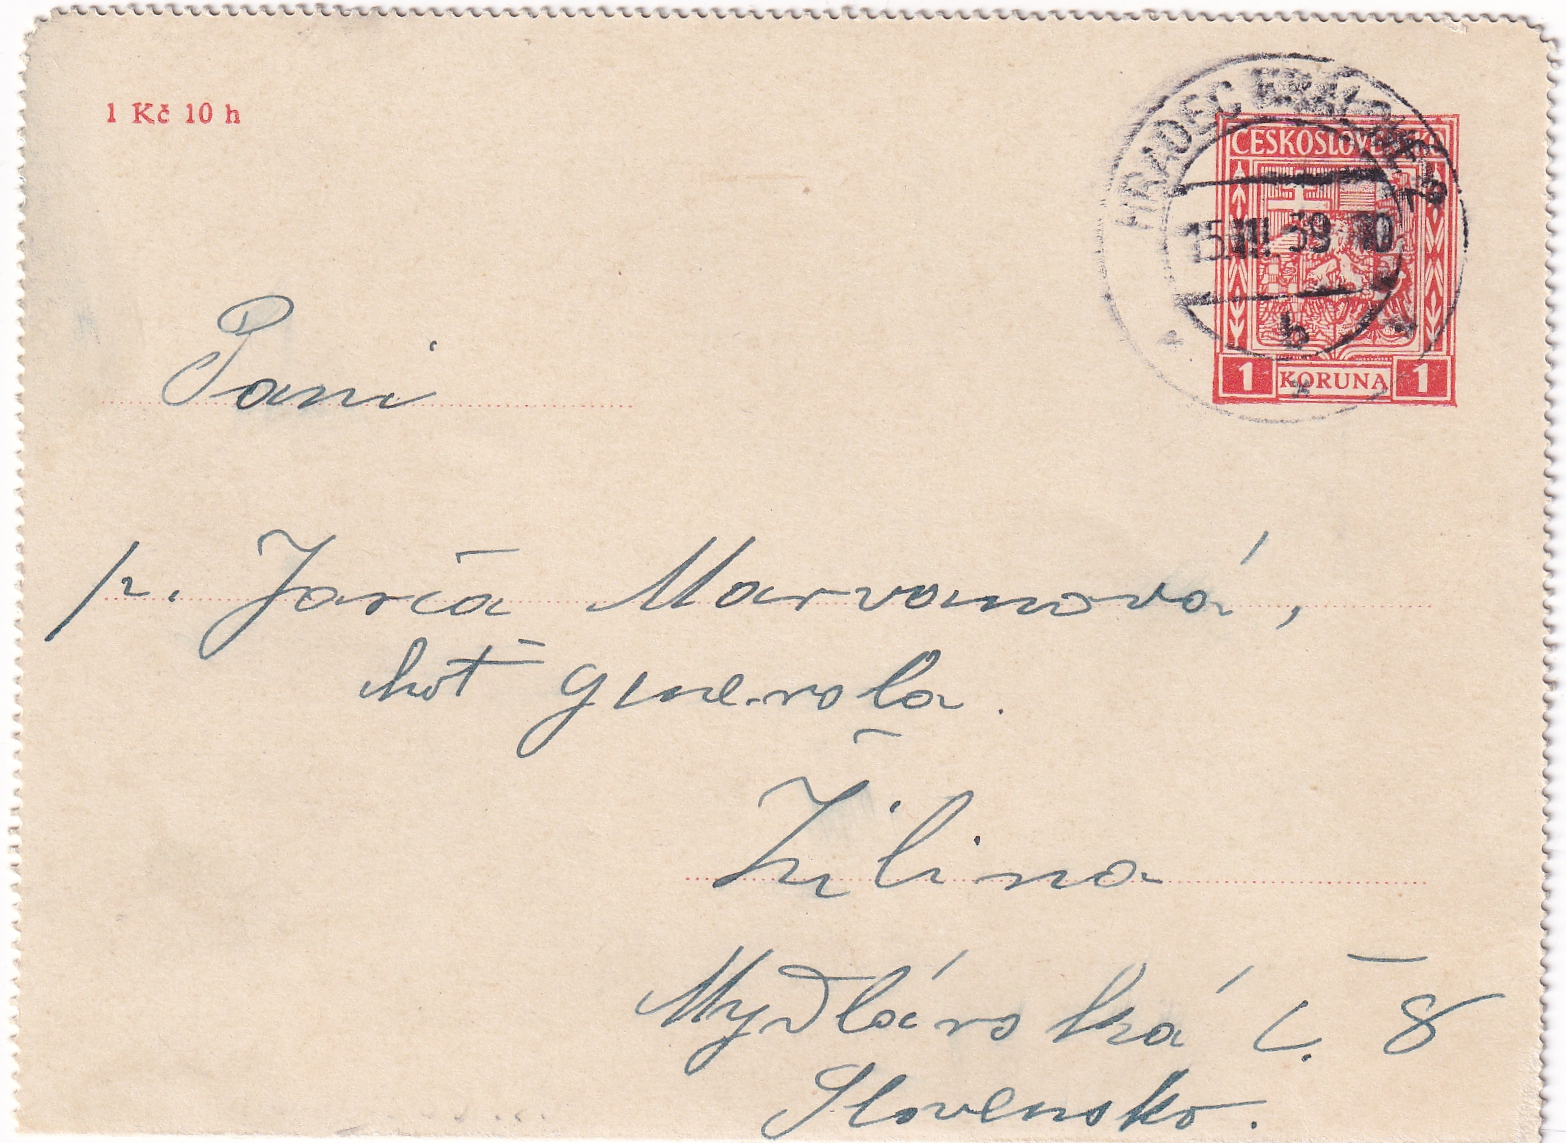 1 Kč 10 h
HRADEC KRÁLOVÉ 2
ČESKOSLOVENSKO
15.III.39
b
1 KORUNA 1
Paní
p. Jarča Marvanová,
choť generála.
Žilina
Mydlárská č. 8
Slovensko.